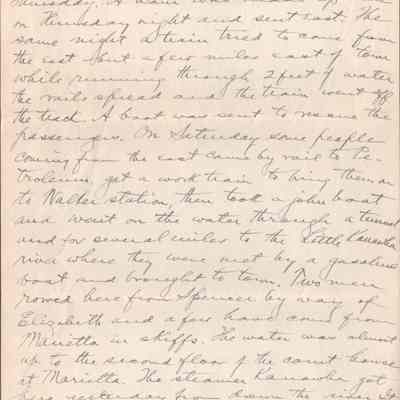 Thursday. A train was made up
on Thursday night and sent east. The
same night a train tried to come from
the east but a few miles east of town
while running through 2 feet of water
the rails spread and the train went off
the track. A boat was sent to rescue the
passengers. On Saturday some people
coming from the east came by rail to Pe-
troleum, got a work train to bring them on
to Walker station, then took a john boat
and went on the water through a tunnel
and for several miles to the Little Kanawha
river where they were met by a gasoline
boat and brought to town. Two men
rowed here from Spencer by way of
Elizabeth and a few have come from
Marietta in skiffs. The water was almost
up to the second floor of the court house
at Marietta. The steamer Kanawha got
here yesterday from down the river. It